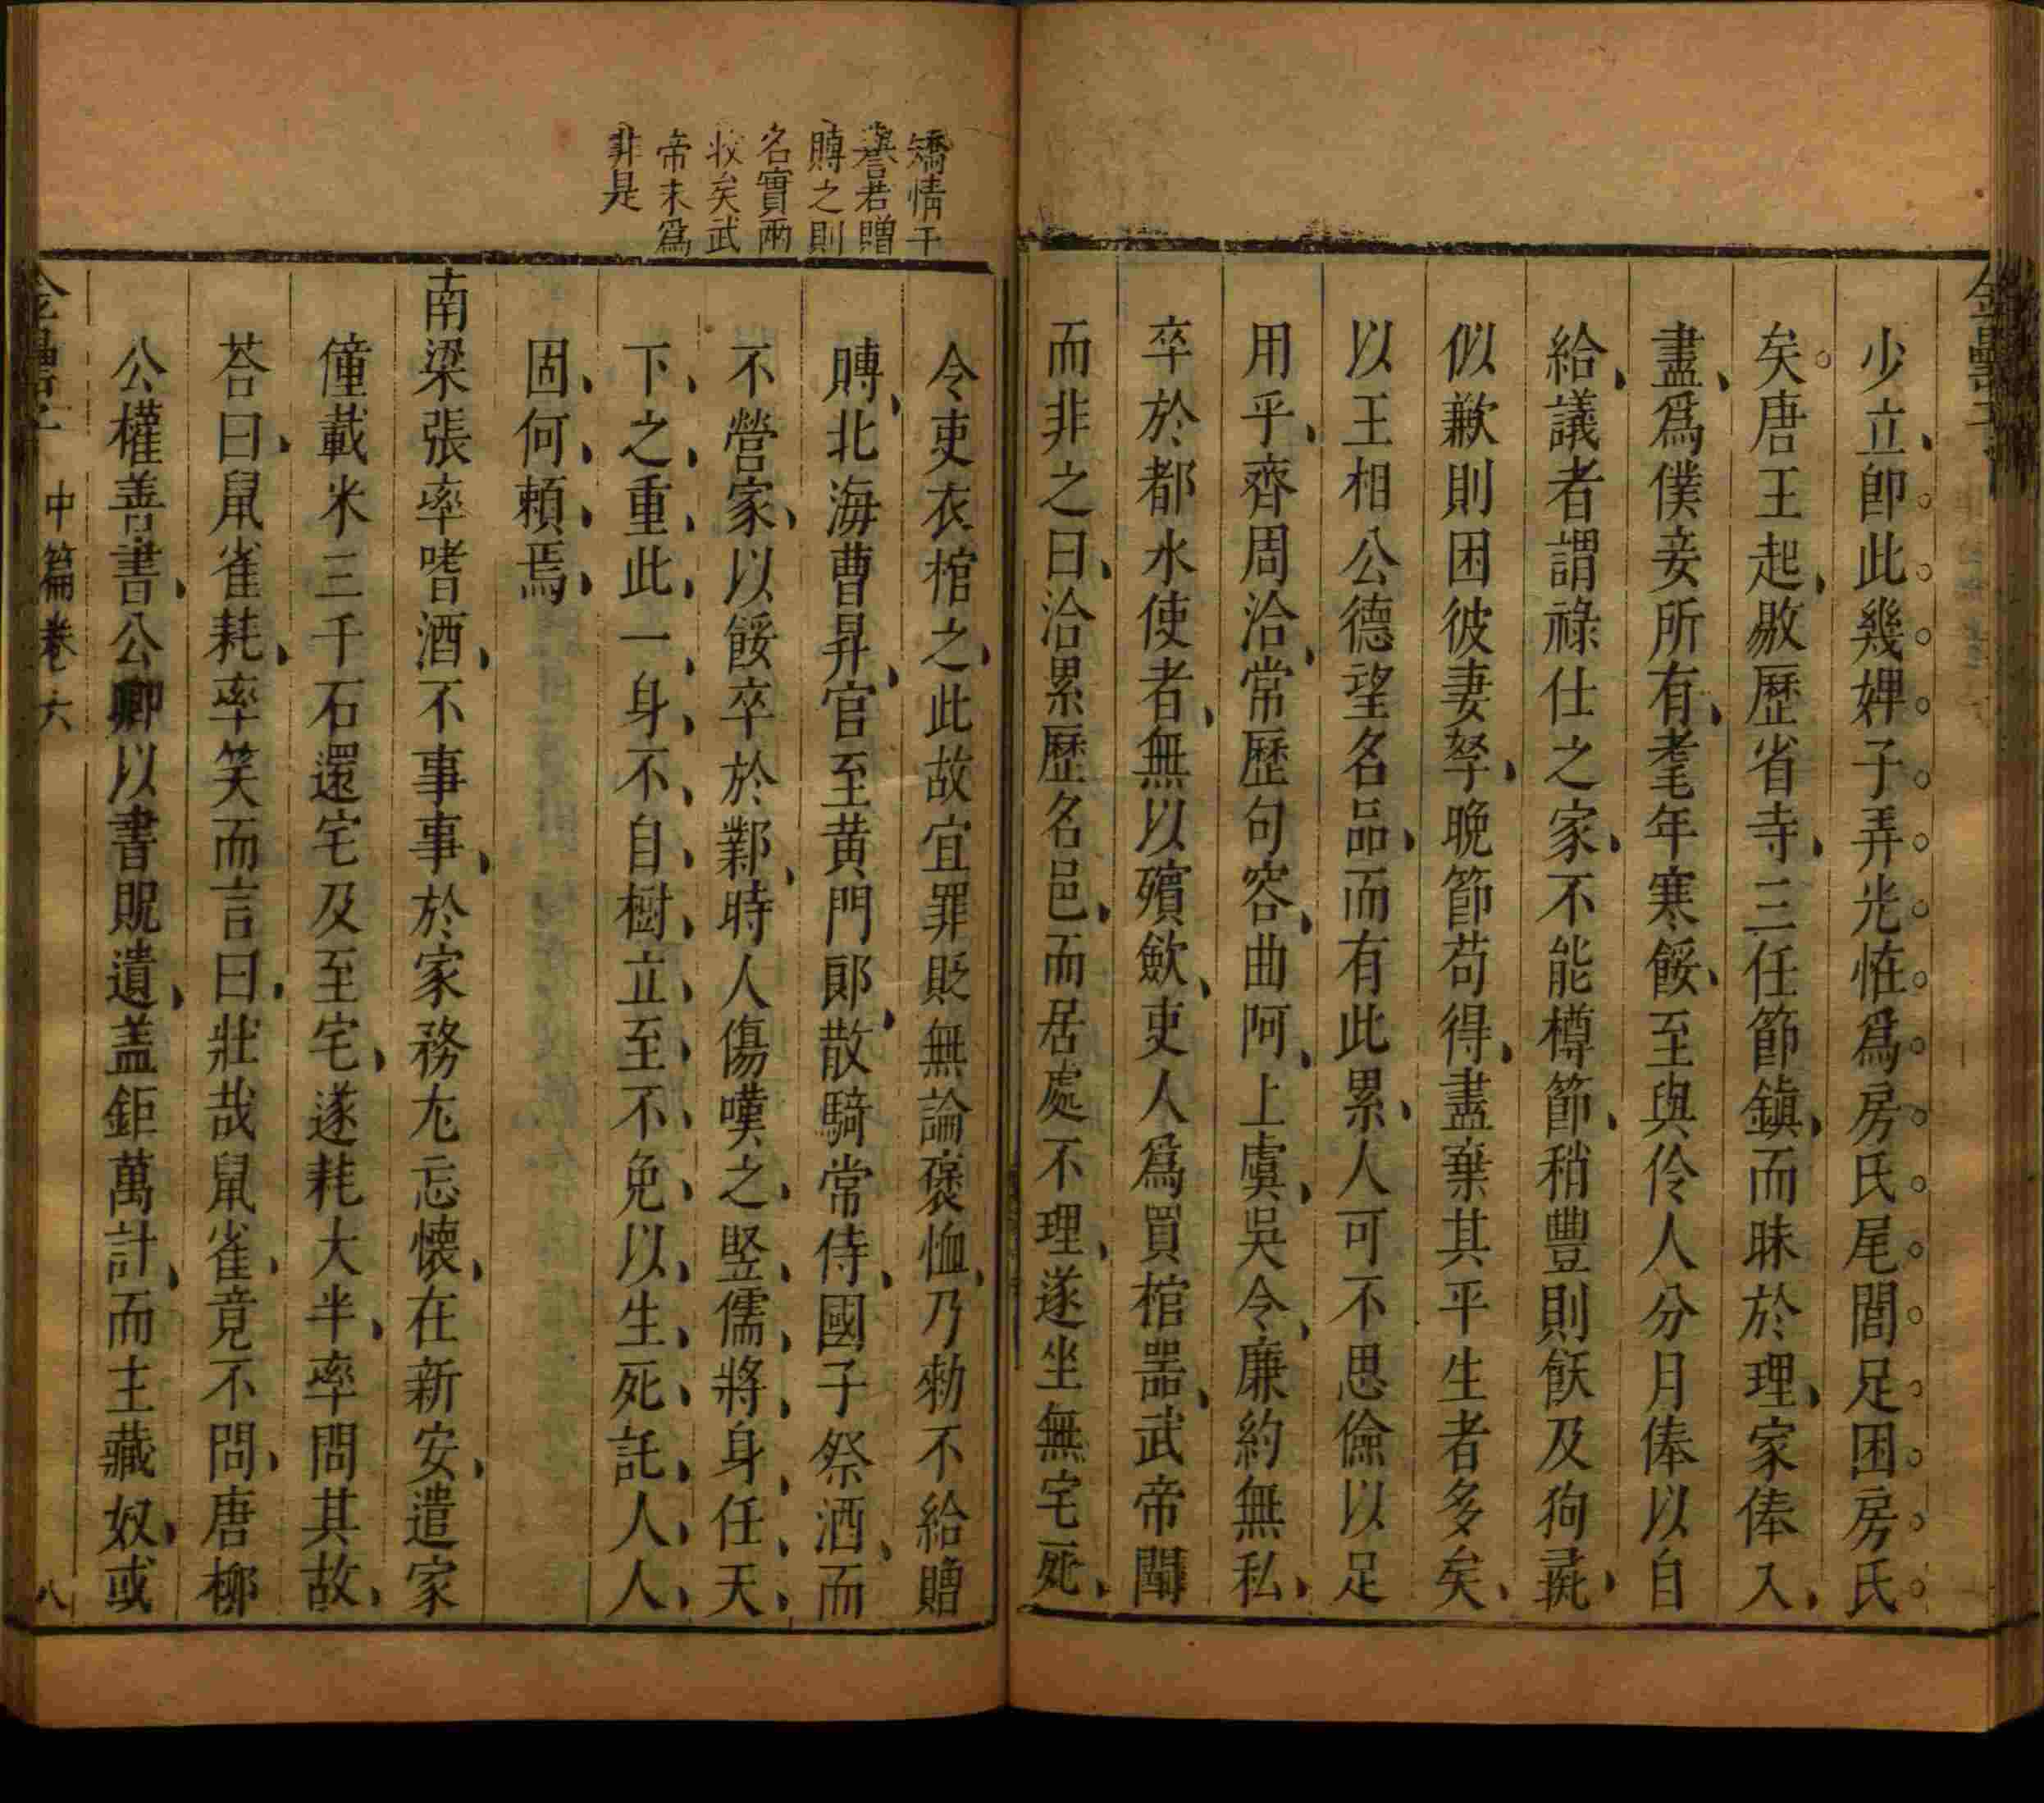 少立即此幾婢子弄光恠爲房氏尾閭足困房氏
矣唐王起敭歷省寺三任節鎮而昧於理家俸入
盡爲僕妾所有耄年寒餒至與伶人分月俸以自
給議者謂祿仕之家不能樽節稍豐則飫及狗彘
似歉則困彼妻孥晚節苟得盡棄其平生者多矣
以王相公德望名品而有此累人可不思儉以足
用乎齊周洽常歷句容曲阿上虞吳令廉約無私
卒於都水使者無以殯歛吏人爲買棺器武帝聞
而非之曰洽累歷名邑而居處不理遂坐無宅死
令吏衣棺之此故宜罪貶無論褒恤乃勑不給贈
賻北海曹昇官至黃門郎散騎常侍國子祭酒而
不營家以餒卒於鄴時人傷嘆之竪儒將身任天
下之重此一身不自樹立至不免以生死託人人
固何賴焉
南梁張率嗜酒不事事於家務尢忘懷在新安遣家
僮載米三千石還宅及至宅遂耗大半率問其故
荅曰鼠雀耗率笑而言曰壯哉鼠雀竟不問唐柳
公權善書公卿以書貺遺盖鉅萬計而主藏奴或
矯情干
譽若贈
賻之則
名實兩
收矣武
帝未爲
非是
中篇卷六
八